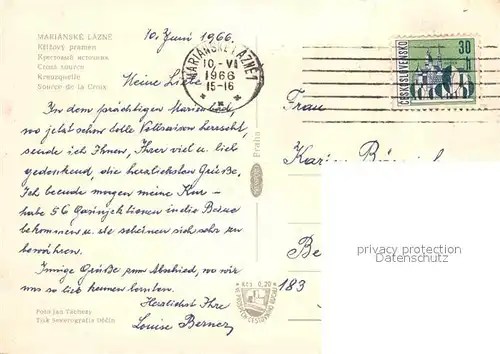 10. Juni 1966.
MARIÁNSKÉ LÁZNĚ
Křížový pramen
Крестовый источник
Cross source
Kreuzquelle
Source de la Croix
MARIÁNSKÉ LÁZNĚ 1
10.-VI
1966
15-16
ČESKOSLOVENSKO
30 h
Meine Liebe
In dem prächtigen Marienbad,
wo jetzt schon tolle Vollsaison herrscht,
sende ich Ihnen, Ihrer viel u. lieb
gedenkend, die herzlichsten Grüße.
Ich beende morgen meine Kur –
habe 56 Gasinjektionen in die Beine
bekommen u. sie scheinen sich sehr zu
bewähren.
Innige Grüße zum Abschied, wo wir
uns so lieb kennen lernten.
Herzlichst Ihre
Louise Berner
Foto Jan Tachezy
Tisk Severografia Děčín
Praha
Frau
Be
183
Kčs 0,20
privacy protection